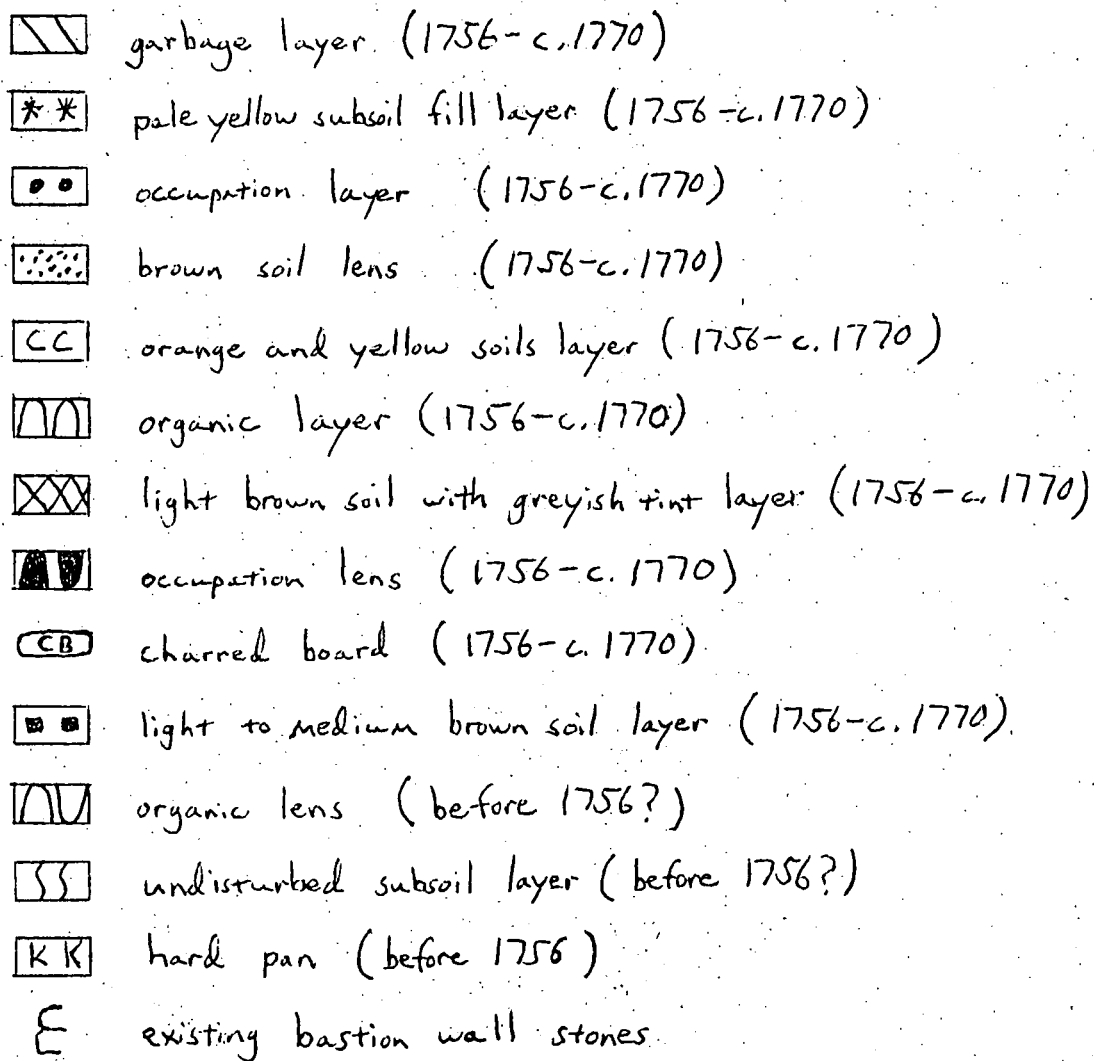 garbage layer (1756-c.1770)
** pale yellow subsoil fill layer (1756-c.1770)
occupation layer (1756-c.1770)
brown soil lens (1756-c.1770)
CC orange and yellow soils layer (1756-c.1770)
organic layer (1756-c.1770)
light brown soil with greyish tint layer (1756-c.1770)
occupation lens (1756-c.1770)
CB charred board (1756-c.1770)
light to medium brown soil layer (1756-c.1770).
organic lens (before 1756?)
SS undisturbed subsoil layer (before 1756?)
KK hard pan (before 1756)
existing bastion wall stones